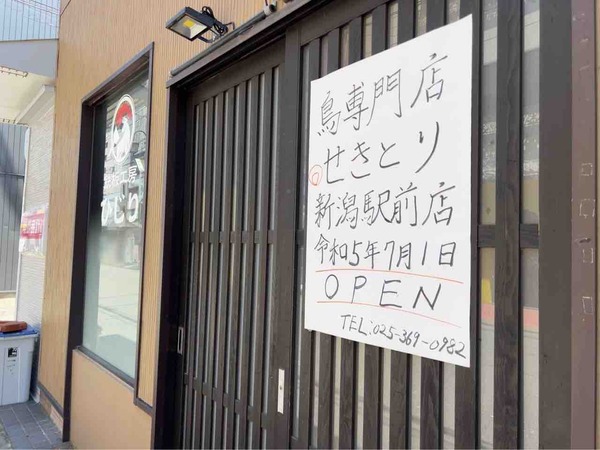 鳥専門店
せきとり
新潟駅前店
令和5年7月1日
OPEN
TEL:025-369-0982
ひじり